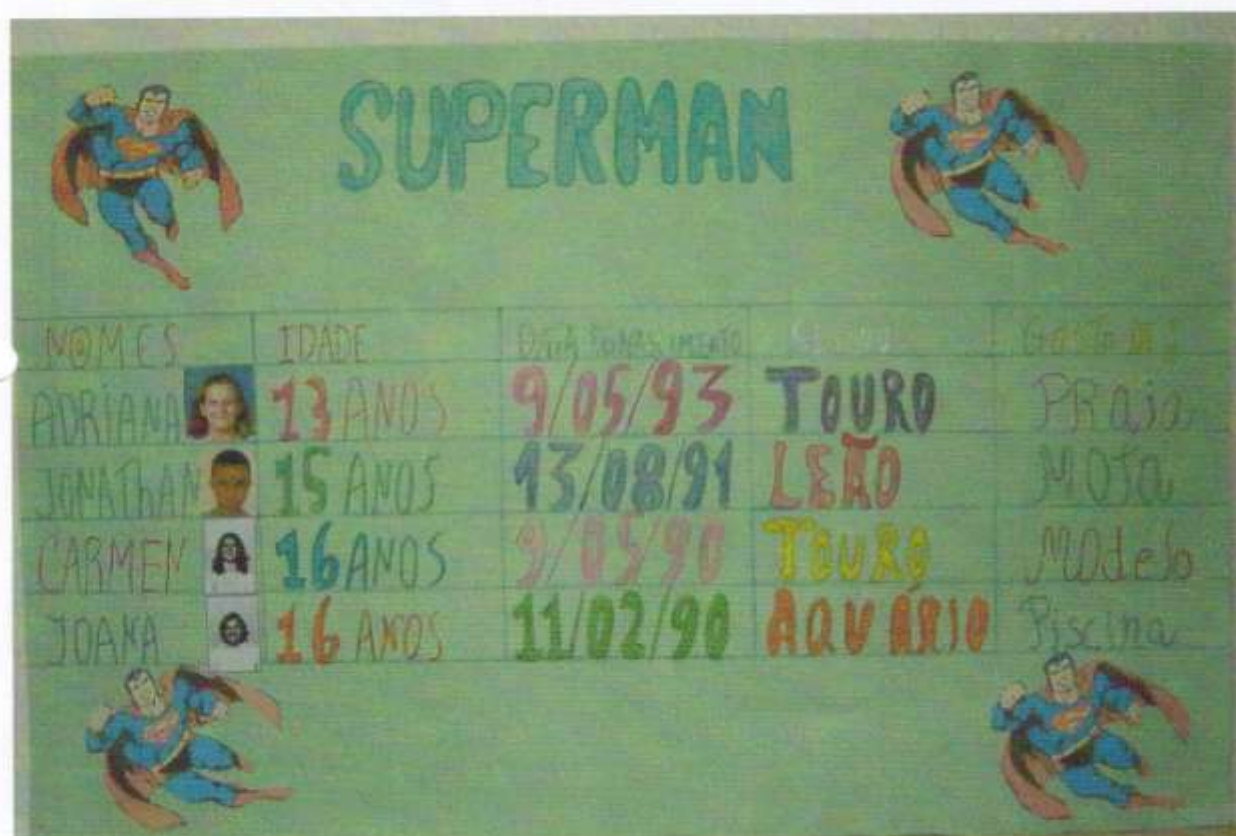 SUPERMAN
NOMES IDADE DATA DO NASCIMENTO
ADRIANA 13 ANOS 9/05/93 TOURO PRaia
JONATHAN 15 ANOS 13/08/91 LEÃO MOTa
CARMEN 16 ANOS 9/05/90 TOURO MOdelo
JOANA 16 ANOS 11/02/90 AQUÁRIO Piscina